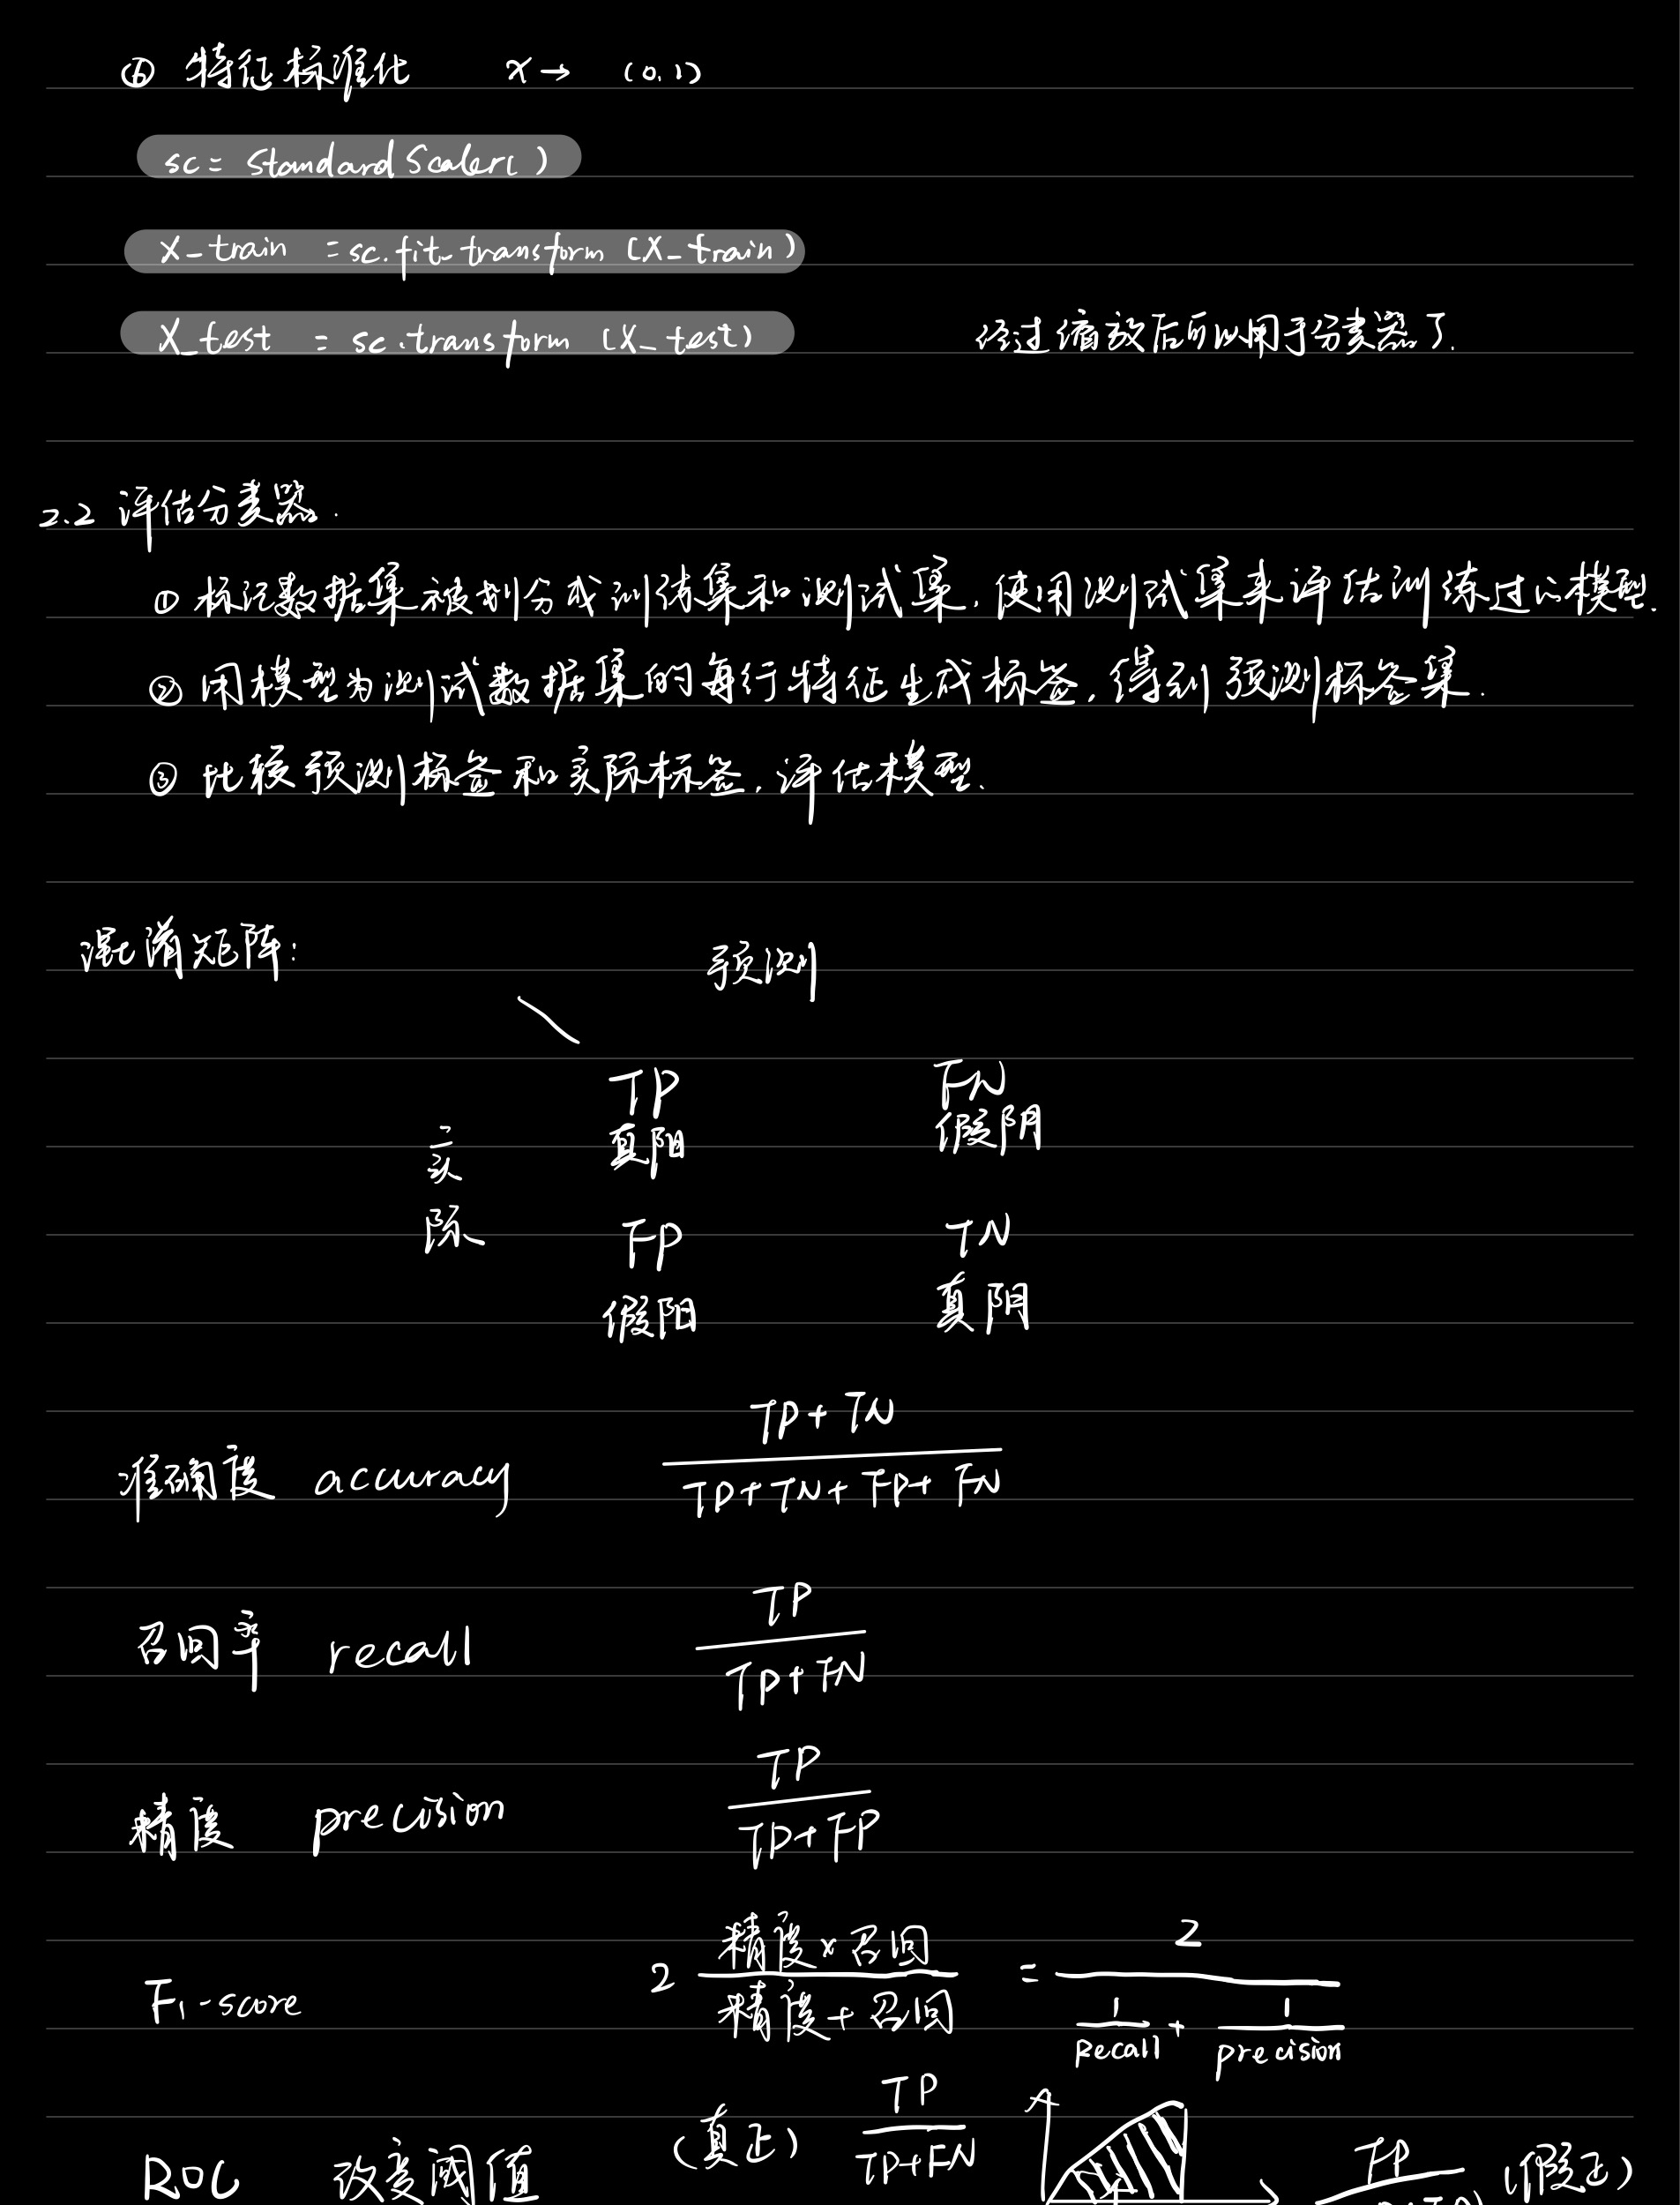 ⑥ 特征标准化 x → (0.1)
sc = StandardScaler( )
X_train = sc.fit_transform (X_train)
X_test = sc.transform (X_test) 经过缩放后可以用于分类器了.
2.2 评估分类器.
① 标记数据集被划分成训练集和测试集, 使用测试集来评估训练过的模型.
② 用模型为测试数据集的每行特征生成标签, 得到预测标签集.
③ 比较预测标签和实际标签, 评估模型.
混淆矩阵: 预测
TP FN
真阳 假阴
实际
FP TN
假阳 真阴
准确度 accuracy TP+TN / TP+TN+FP+FN
召回率 recall TP / TP+FN
精度 precision TP / TP+FP
F1-score 2 精度×召回 / 精度+召回 = 2 / 1/Recall + 1/precision
ROC 改变阈值 (真正) TP / TP+FN FP (假正)